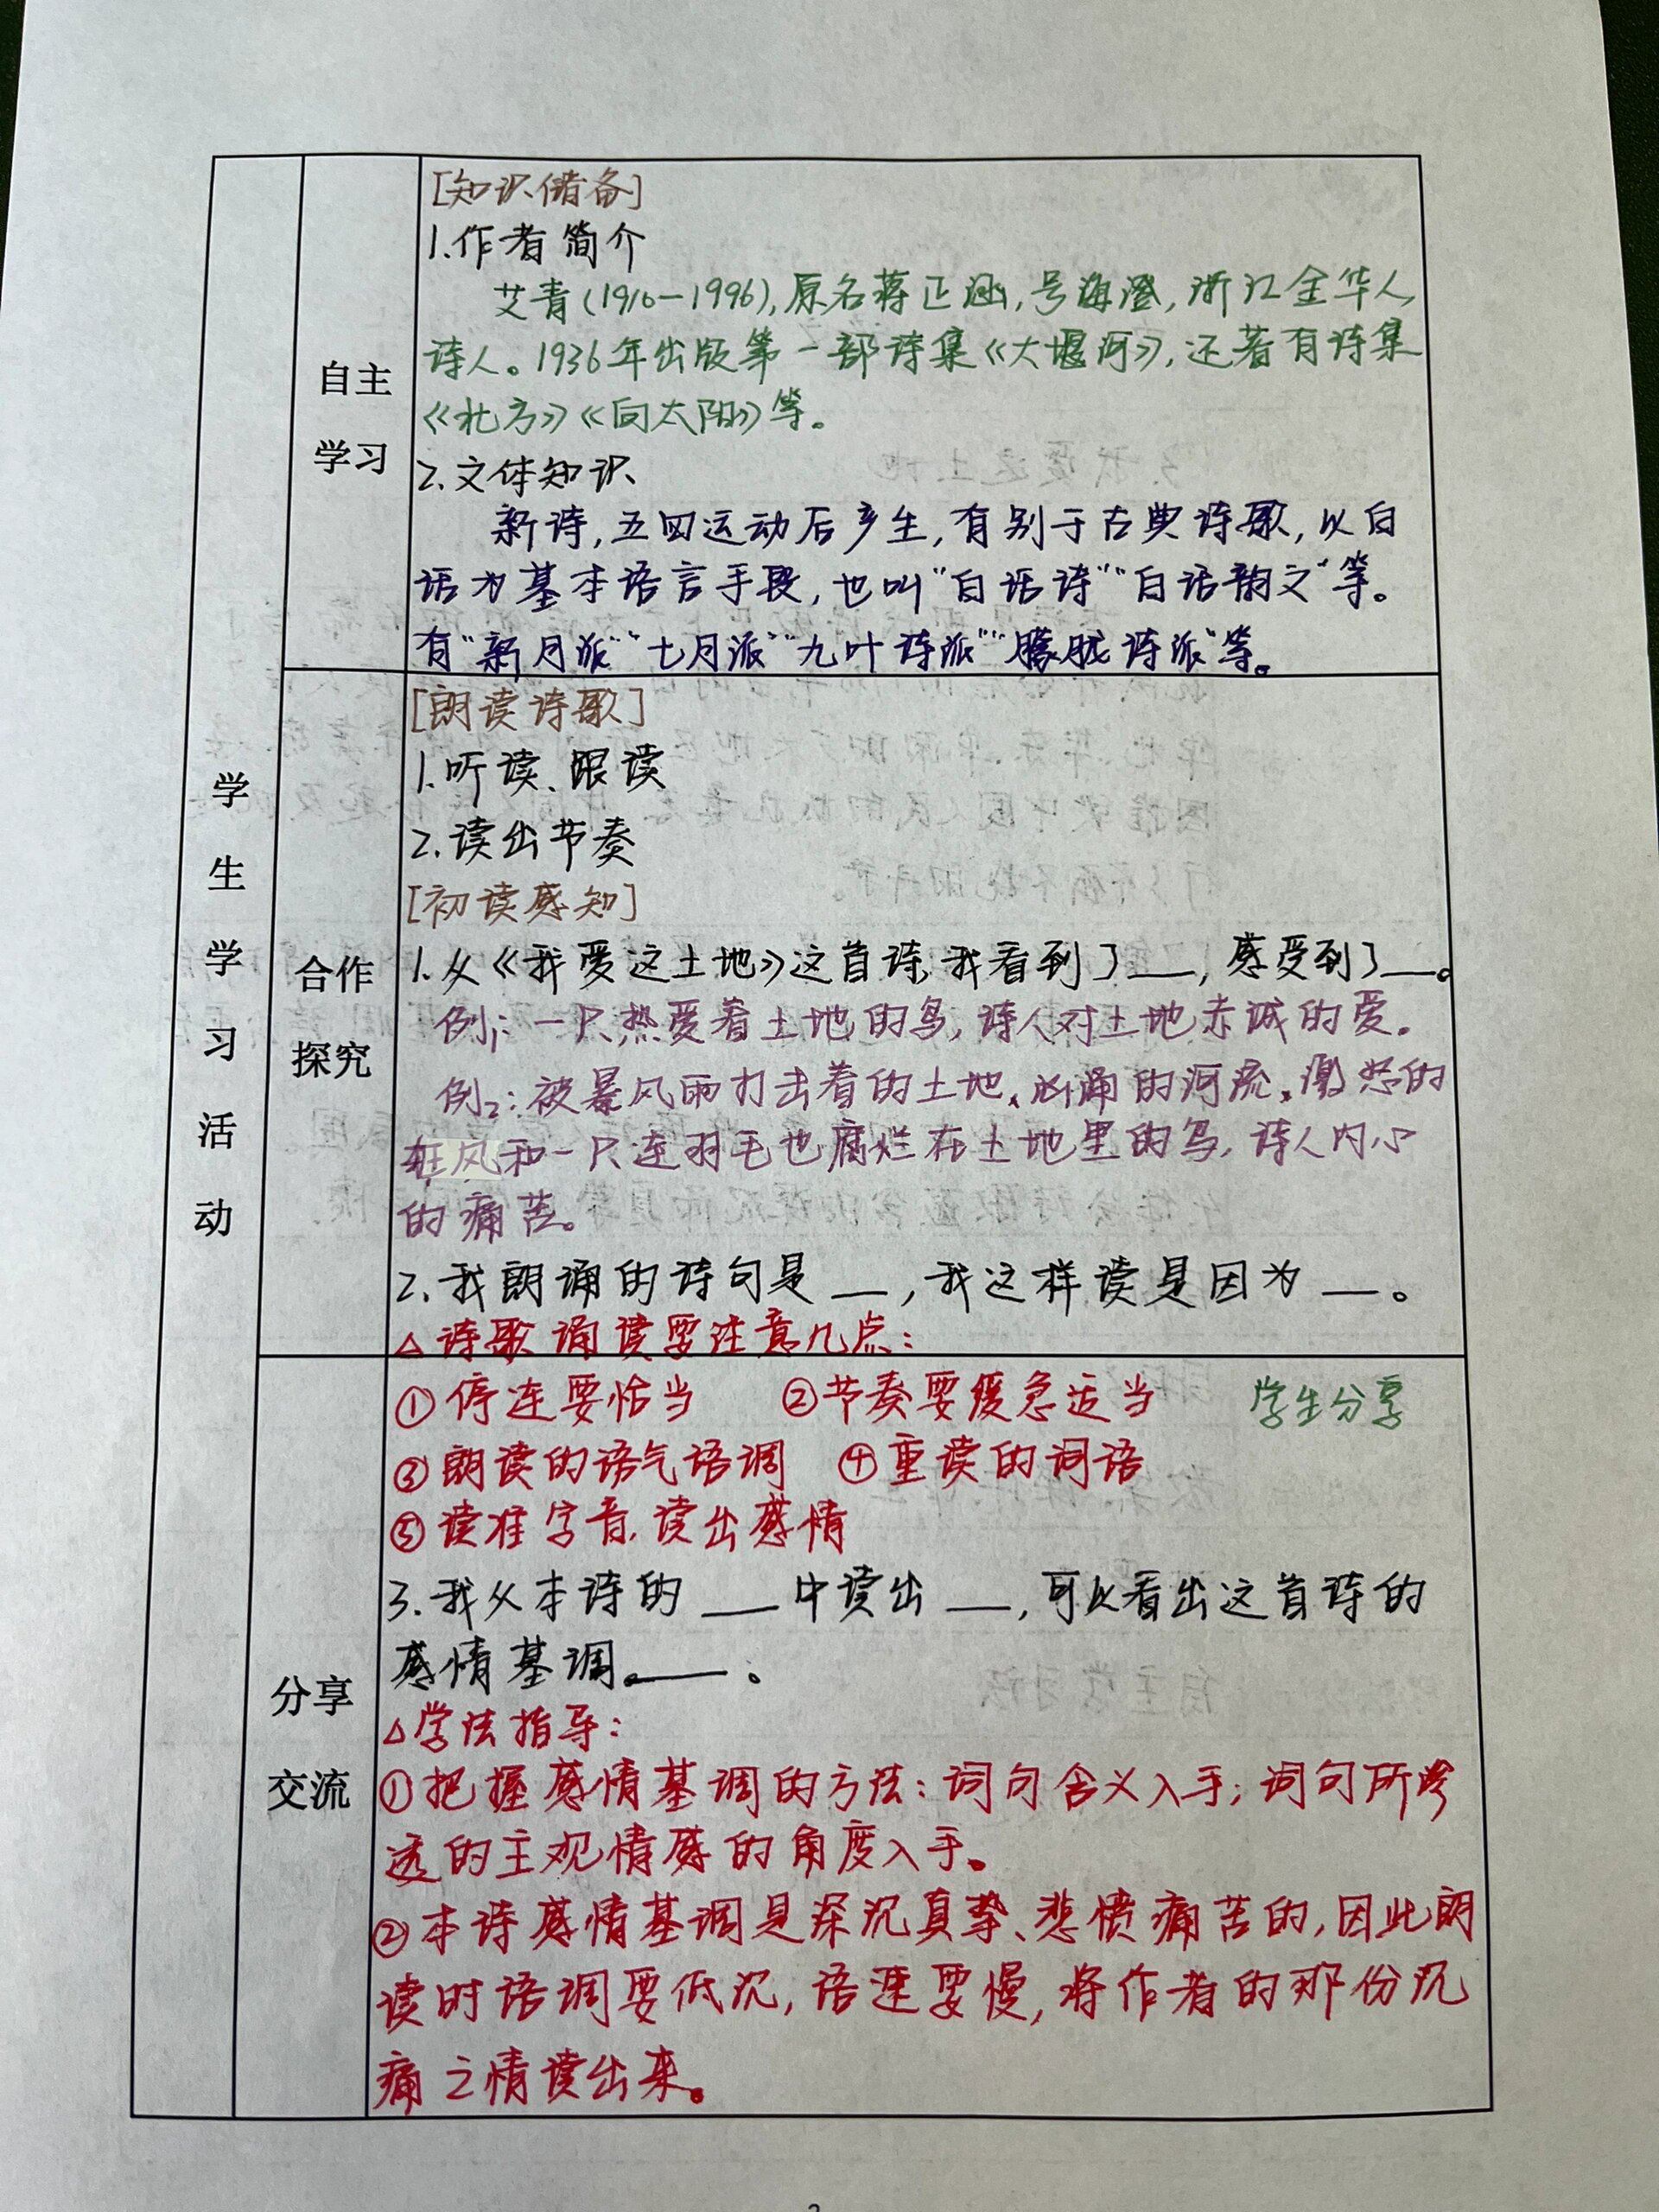 学生学习活动
自主
学习
[知识储备]
1.作者简介
艾青(1910—1996),原名蒋正涵,号海澄,浙江金华人,
诗人。1936年出版第一部诗集《大堰河》,还著有诗集
《北方》《向太阳》等。
2.文体知识
新诗,五四运动后产生,有别于古典诗歌,以白
话为基本语言手段,也叫“白话诗”“白话韵文”等。
有“新月派”“七月派”“九叶诗派”“朦胧诗派”等。
合作
探究
[朗读诗歌]
1.听读、跟读
2.读出节奏
[初读感知]
1.从《我爱这土地》这首诗,我看到了___,感受到了___。
例1:一只热爱着土地的鸟,诗人对土地赤诚的爱。
例2:被暴风雨打击着的土地、汹涌的河流、激怒的
狂风和一只连羽毛也腐烂在土地里的鸟,诗人内心
的痛苦。
2.我朗诵的诗句是___,我这样读是因为___。
△诗歌诵读要注意几点:
分享
交流
①停连要恰当 ②节奏要缓急适当 学生分享
③朗读的语气语调 ④重读的词语
⑤读准字音,读出感情
3.我从本诗的___中读出___,可以看出这首诗的
感情基调。___。
△学法指导:
①把握感情基调的方法:词句含义入手;词句所渗
透的主观情感的角度入手。
②本诗感情基调是深沉真挚、悲愤痛苦的,因此朗
读时语调要低沉,语速要慢,将作者的那份沉
痛之情读出来。